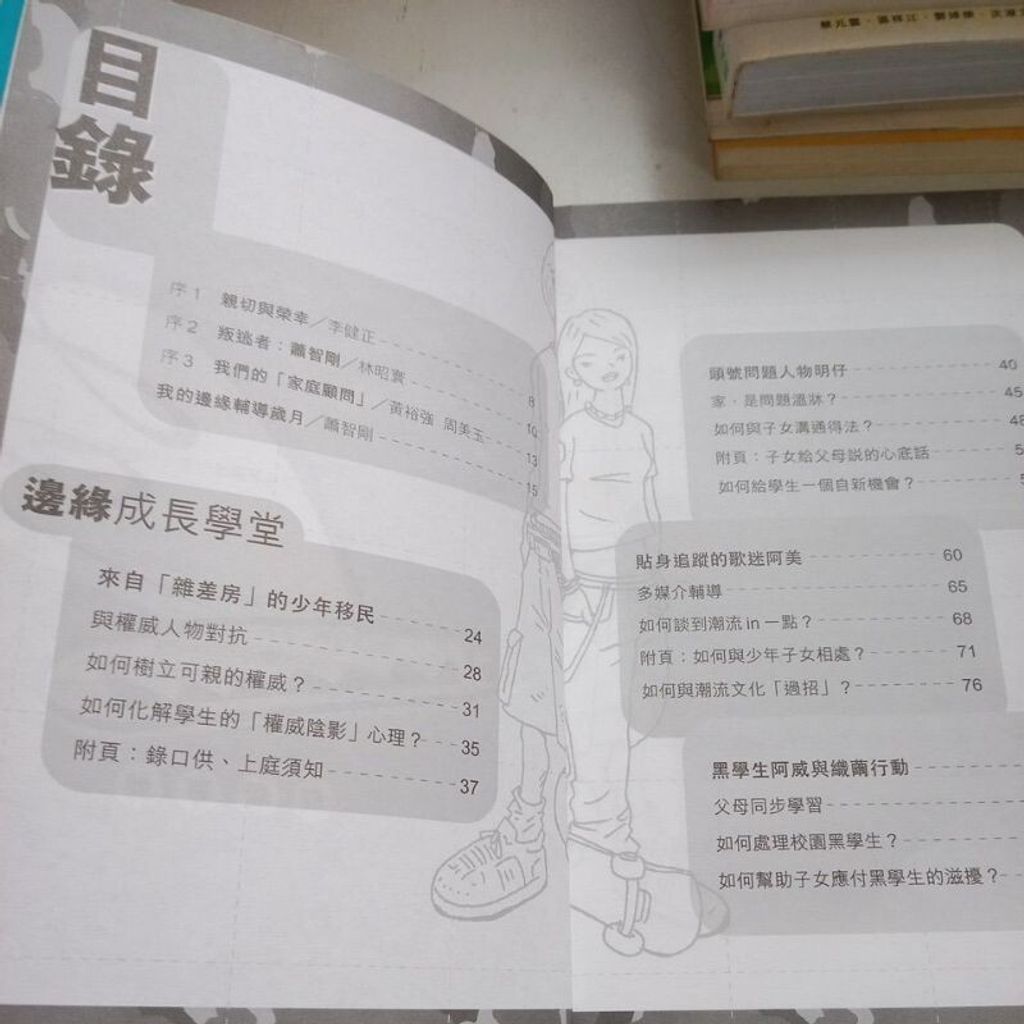 目錄
序1 親切與榮幸／李健正 8
序2 叛逃者：蕭智剛／林昭寰 10
序3 我們的「家庭顧問」／黃裕強 周美玉 13
我的邊緣輔導歲月／蕭智剛 15
邊緣成長學堂
來自「雜差房」的少年移民 24
與權威人物對抗 28
如何樹立可親的權威？ 31
如何化解學生的「權威陰影」心理？ 35
附頁：錄口供、上庭須知 37
頭號問題人物明仔 40
家，是問題溫牀？ 45
如何與子女溝通得法？ 48
附頁：子女給父母説的心底話
如何給學生一個自新機會？
貼身追蹤的歌迷阿美 60
多媒介輔導 65
如何談到潮流in一點？ 68
附頁：如何與少年子女相處？ 71
如何與潮流文化「過招」？ 76
黑學生阿威與織繭行動
父母同步學習
如何處理校園黑學生？
如何幫助子女應付黑學生的滋擾？